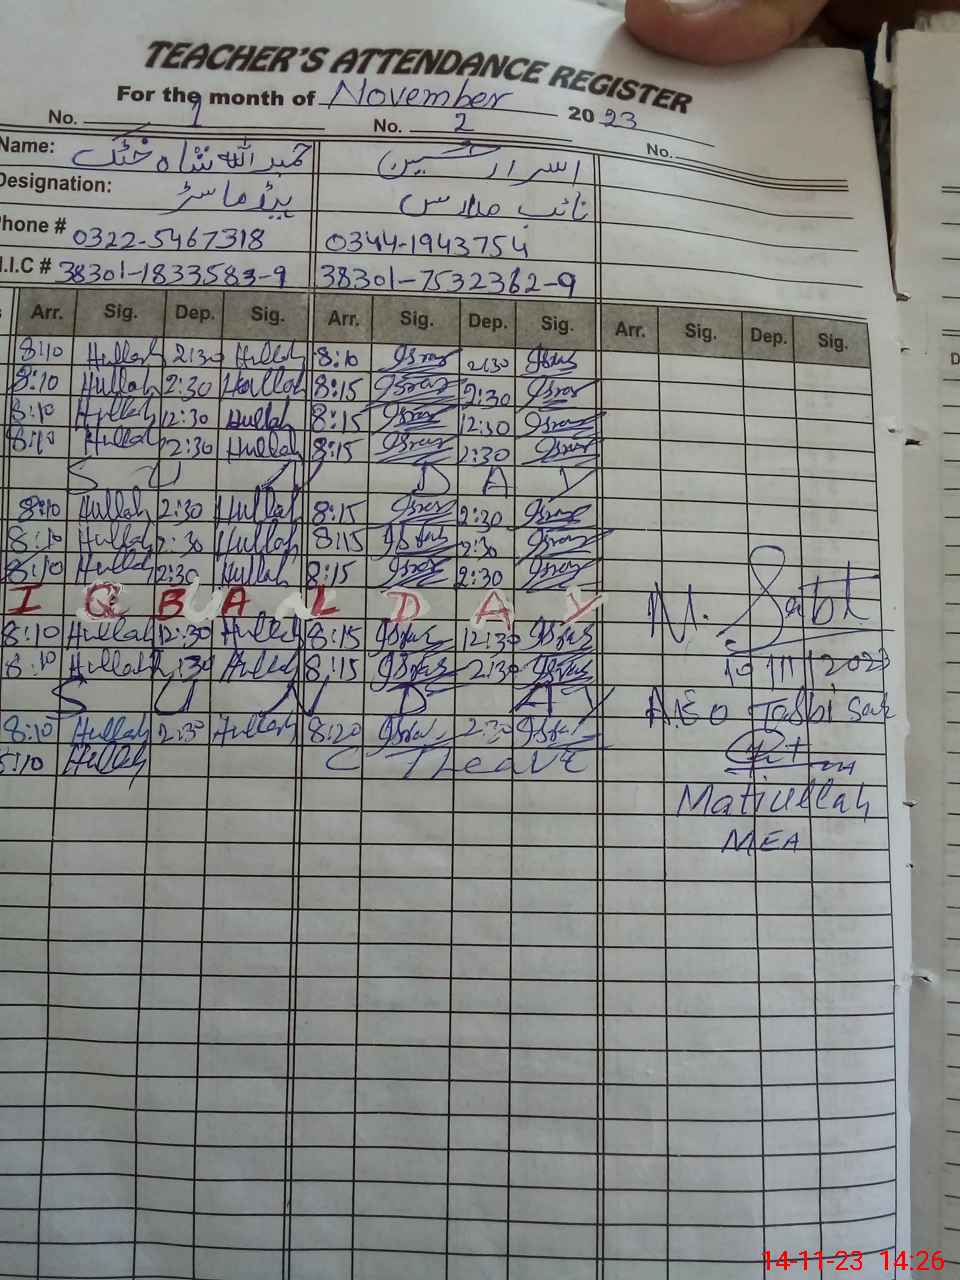 TEACHER'S ATTENDANCE REGISTER
For the month of November 2023
No. 1 No. 2 No.
Name: حمید اللہ شاہ خٹک اسرار حسین
Designation: ہیڈ ماسٹر نائب مدرس
Phone # 0322-5467318 0344-1943754
I.I.C # 38301-1833583-9 38301-7532362-9
Arr. Sig. Dep. Sig. Arr. Sig. Dep. Sig. Arr. Sig. Dep. Sig.
8:10 Hullah 2:30 Hullah 8:10 Israr 2:30 Israr
8:10 Hullah 2:30 Hullah 8:15 Israr 2:30 Israr
8:10 Hullah 12:30 Hullah 8:15 Israr 12:30 Israr
8:10 Hullah 2:30 Hullah 8:15 Israr 2:30 Israr
S U N D A Y
8:10 Hullah 2:30 Hullah 8:15 Israr 2:30 Israr
8:10 Hullah 2:30 Hullah 8:15 Israr 2:30 Israr
8:10 Hullah 2:30 Hullah 8:15 Israr 2:30 Israr
I Q B A L D A Y
8:10 Hullah 12:30 Hullah 8:15 Israr 12:30 Israr
8:10 Hullah 2:30 Hullah 8:15 Israr 2:30 Israr
S U N D A Y
8:10 Hullah 2:30 Hullah 8:20 Israr 2:30 Israr
8:10 Hullah C Leave
M. Sabt
10/11/2023
A.E.O
Matiullah
MEA
14-11-23 14:26